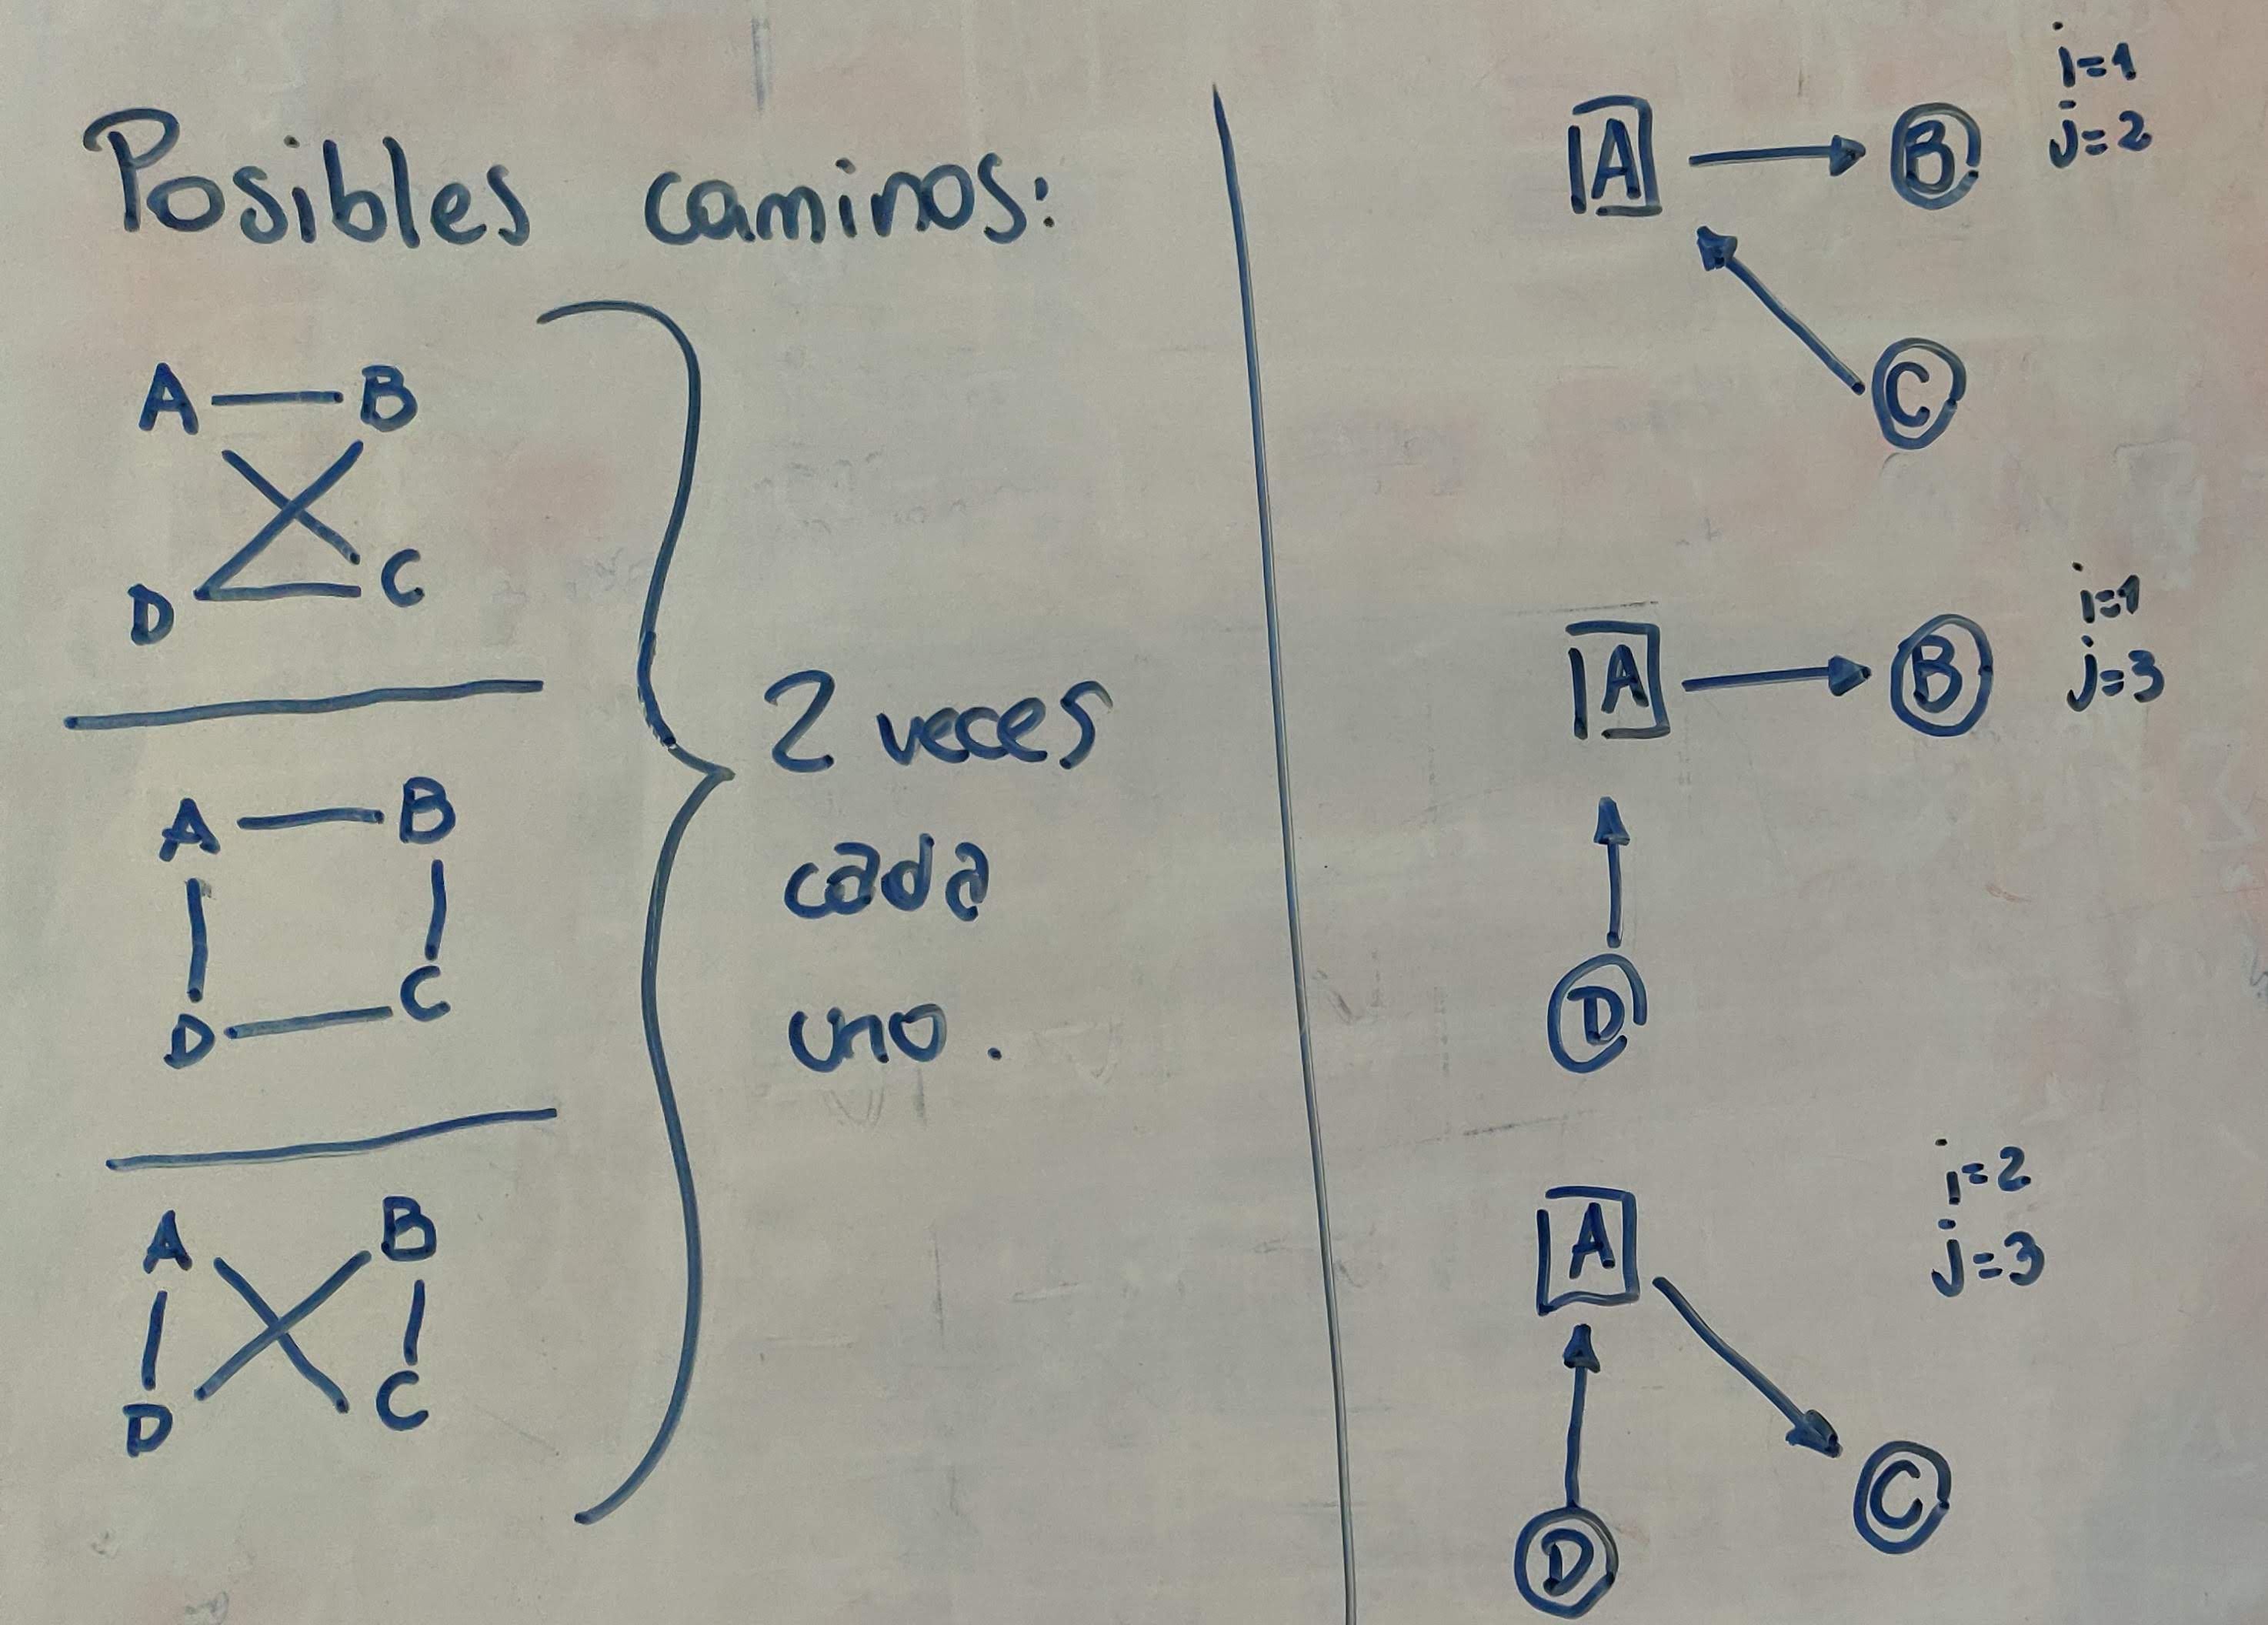 Posibles caminos:
A B
D C
A B
D C
A B
D C
2 veces
cada
uno.
A B
i=1
j=2
C
A B
i=1
j=3
D
A
i=2
j=3
C
D